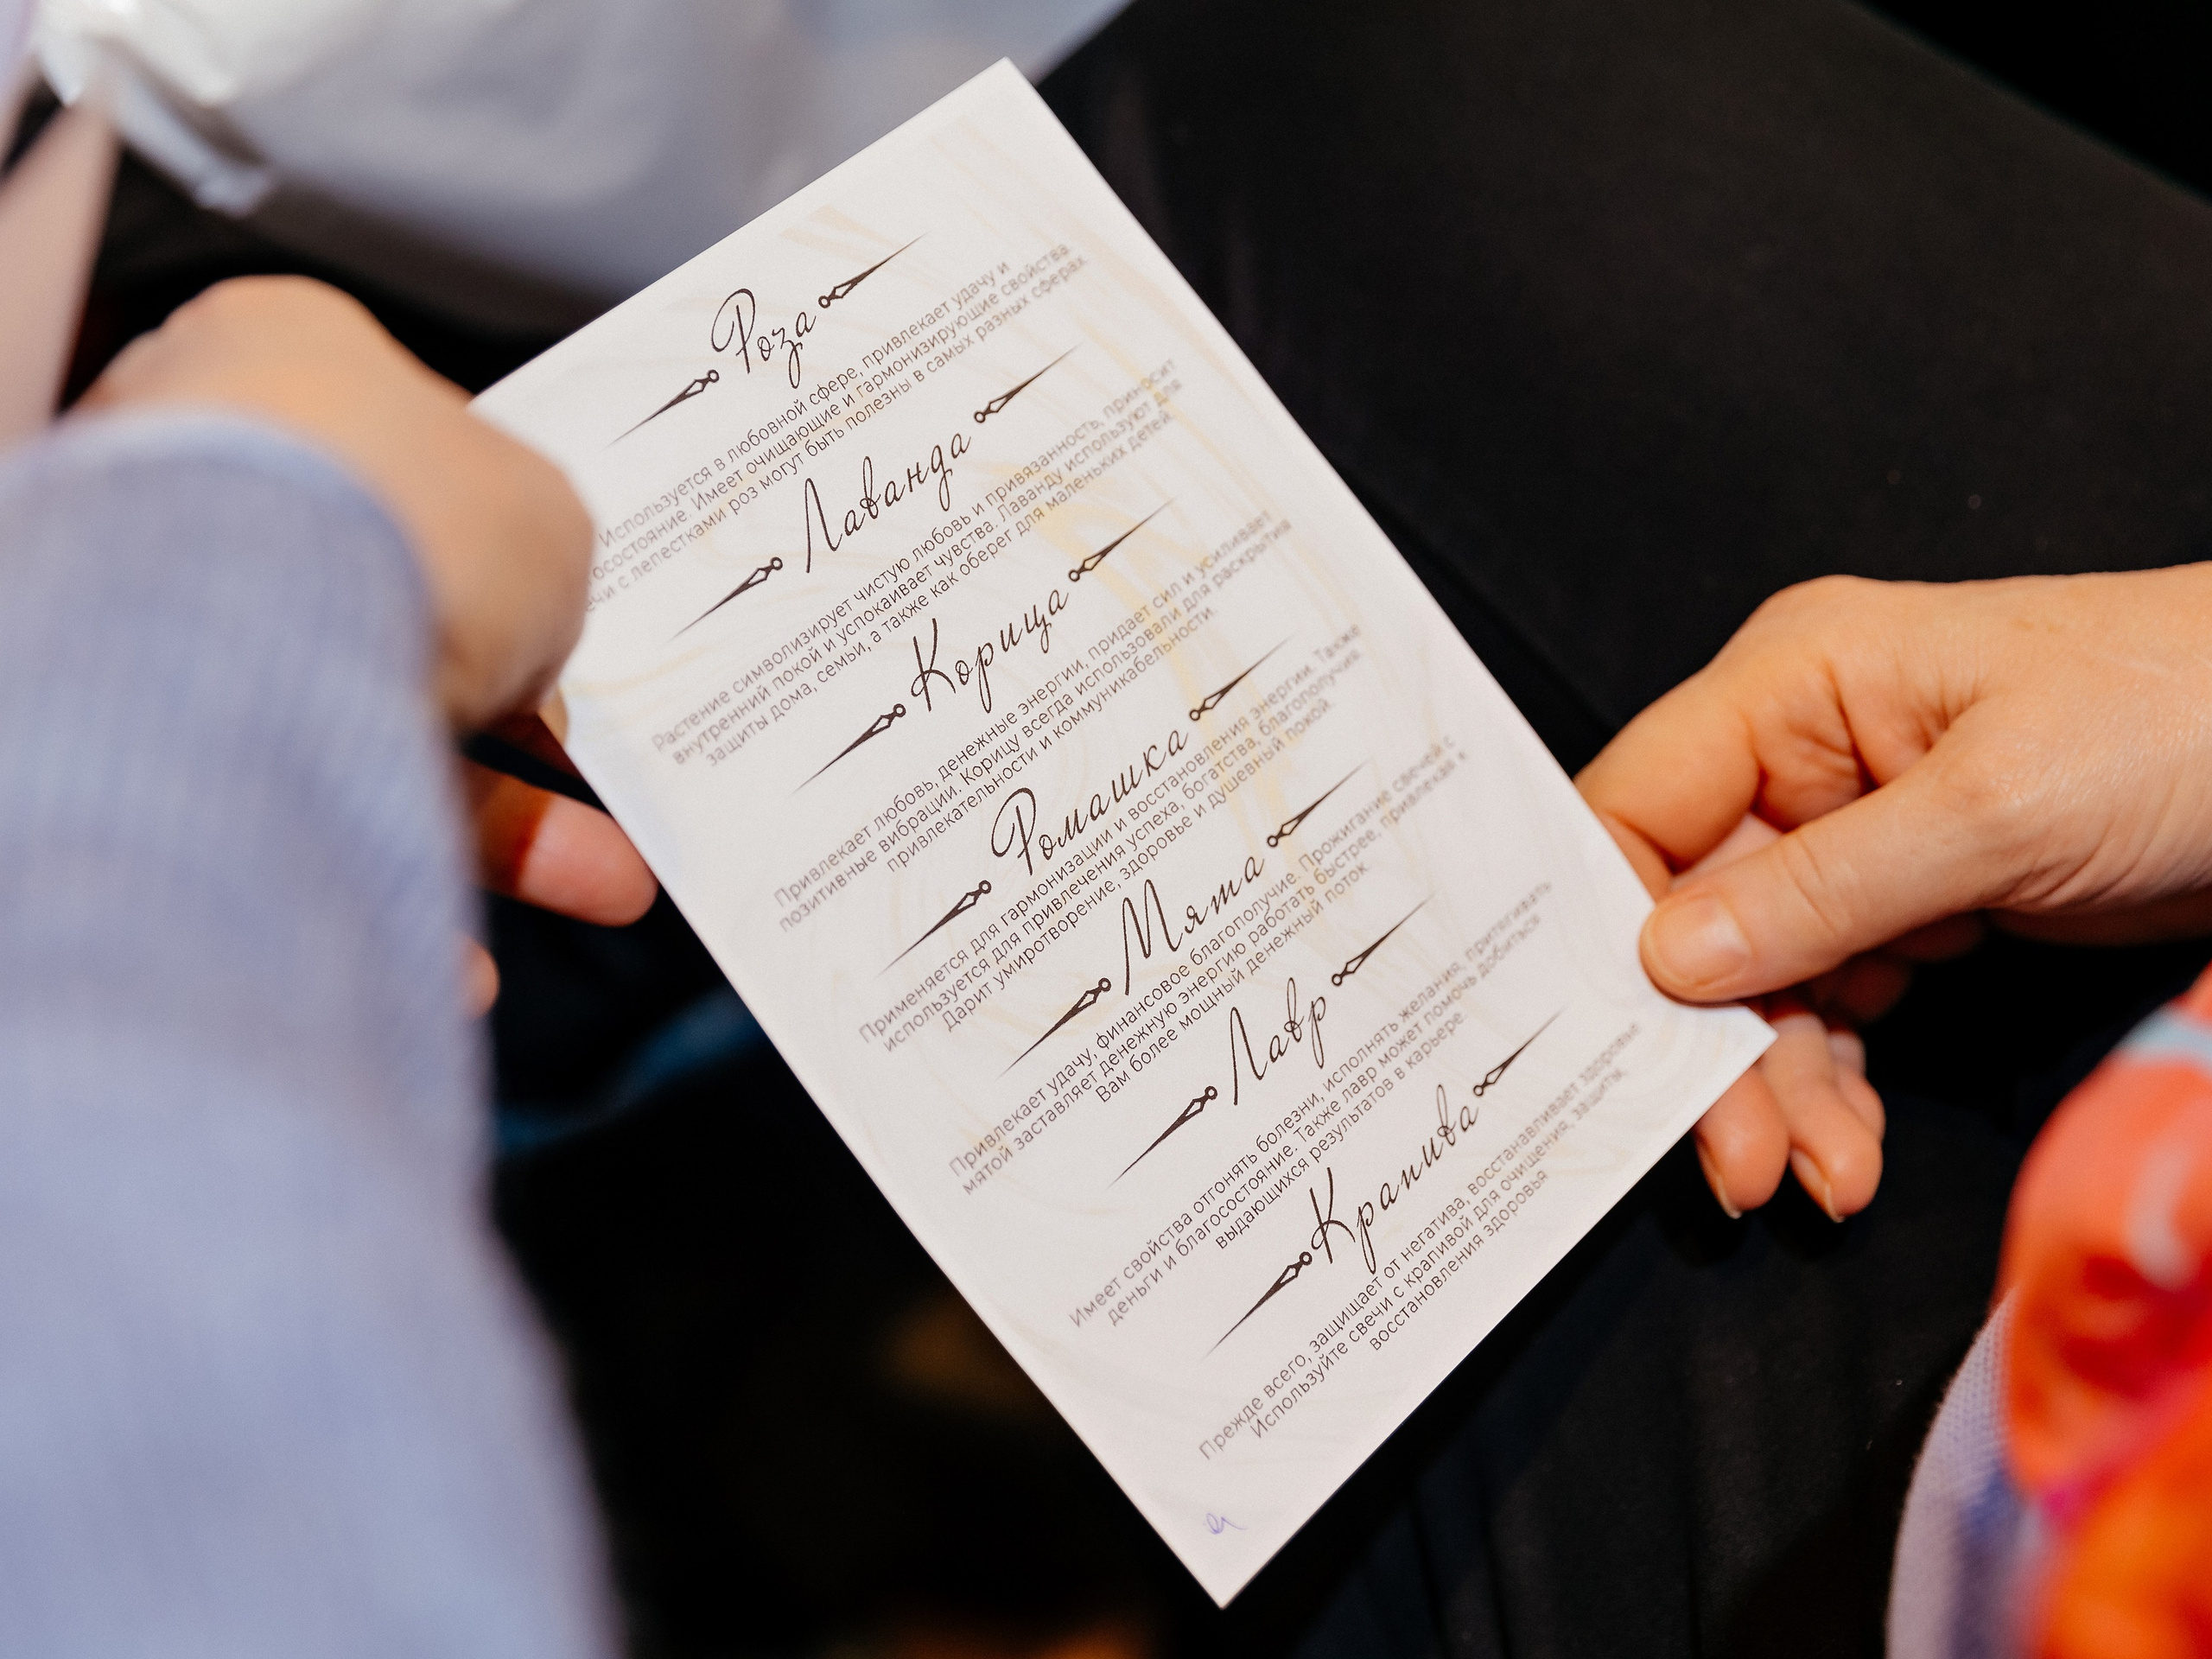 Роза
Используется в любовной сфере, привлекает удачу и
Имеет очищающие и гармонизирующие свойства
с лепестками роз могут быть полезны в самых разных сферах
Лаванда
Растение символизирует чистую любовь и привязанность, приносит
внутренний покой и успокаивает чувства. Лаванду используют для
защиты дома, семьи, а также как оберег для маленьких детей.
Корица
Привлекает любовь, денежные энергии, придает сил и усиливает
позитивные вибрации. Корицу всегда использовали для раскрытия
привлекательности и коммуникабельности.
Ромашка
Применяется для гармонизации и восстановления энергии. Также
используется для привлечения успеха, богатства, благополучия.
Дарит умиротворение, здоровье и душевный покой.
Мята
Привлекает удачу, финансовое благополучие. Прожигание свечей с
мятой заставляет денежную энергию работать быстрее, привлекая к
Вам более мощный денежный поток
Лавр
Имеет свойства отгонять болезни, исполнять желания, притягивать
деньги и благосостояние. Также лавр может помочь добиться
выдающихся результатов в карьере.
Крапива
Прежде всего, защищает от негатива, восстанавливает здоровье
Используйте свечи с крапивой для очищения, защиты,
восстановления здоровья